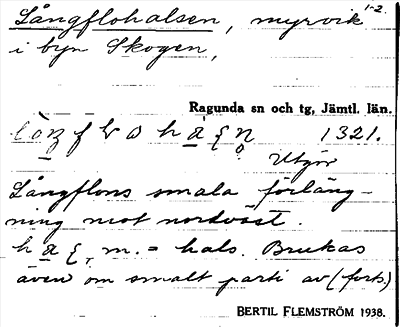 1-2.
Långflohalsen, myrvik
i byn Skogen,
Ragunda sn och tg, Jämtl. län.
1321.
Utgör
Långflons smala förläng-
ning mot nordväst.
m. = hals. Brukas
även om smalt parti av (forts.)
BERTIL FLEMSTRÖM 1938.